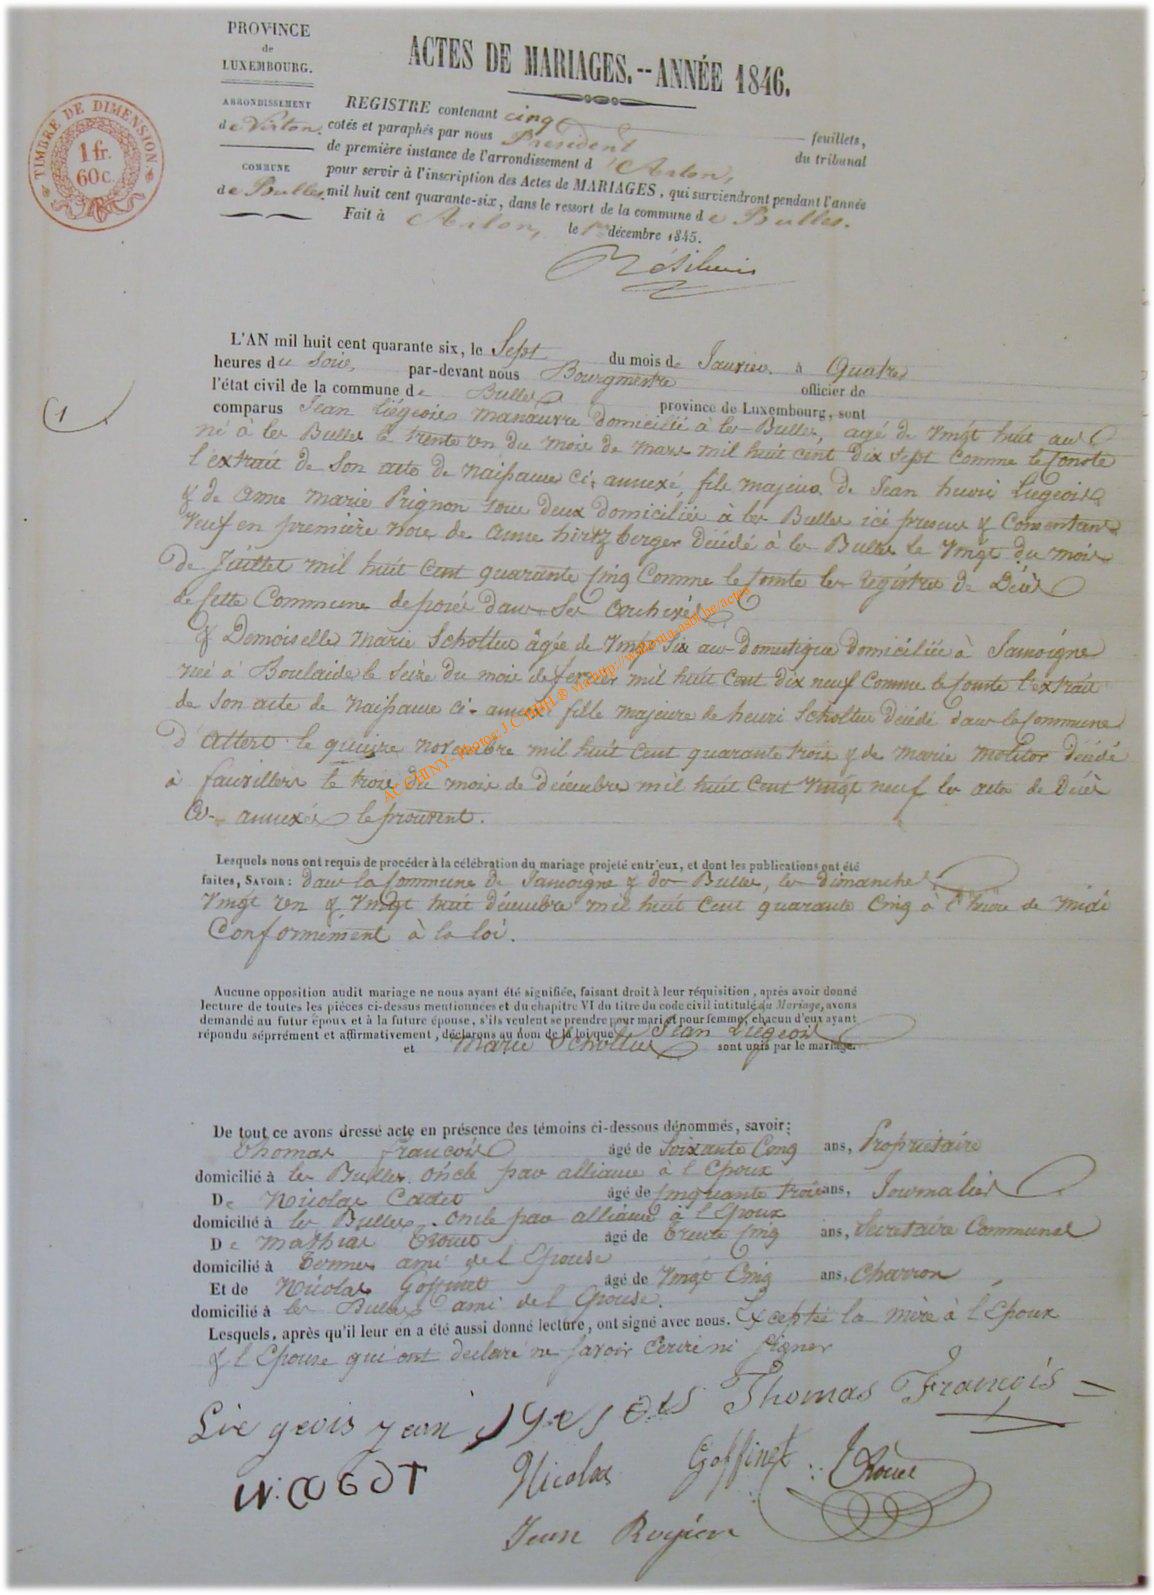 PROVINCE
de
LUXEMBOURG.
ARRONDISSEMENT
de Virton.
COMMUNE
de Bulles.
TIMBRE DE DIMENSION
1 fr.
60 c.
ACTES DE MARIAGES.--ANNÉE 1846.
REGISTRE contenant cinq feuillets,
cotés et paraphés par nous Président du tribunal
de première instance de l'arrondissement d'Arlon,
pour servir à l'inscription des Actes de MARIAGES, qui surviendront pendant l'année
mil huit cent quarante-six, dans le ressort de la commune de Bulles.
Fait à Arlon, le 1er décembre 1845.
1
L'AN mil huit cent quarante six, le Sept du mois de Janvier à Quatre
heures du soir, par-devant nous Bourgmestre officier de
l'état civil de la commune de Bulles province de Luxembourg, sont
comparus Jean Liégeois manœuvre domicilié à les Bulles, agé de vingt huit ans
né à les Bulles le trente un du mois de mars mil huit cent dix sept comme le conste
l'extrait de son acte de naissance ci-annexé, fils majeur de Jean henri Liegeois
& de anne marie Prignon tous deux domiciliés à les Bulles ici presens & Consentans
veuf en première noce de anne hirtzberger décédé à les Bulles le vingt du mois
de Juillet mil huit cent quarante cinq comme le conste les registres de Décès
de cette Commune deposés dans ses archives
& Demoiselle marie Scholtus âgée de vingt six ans domestique domiciliée à Jamoigne
née à Boulaide le seize du mois de fevrier mil huit cent dix neuf comme le conste l'extrait
de son acte de naissance ci-annexé fille majeure de henri Scholtus décédé dans la commune
d'attert le quinze novembre mil huit cent quarante trois & de marie molitor décédé
à fauvillers le trois du mois de décembre mil huit cent vingt neuf les actes de Décès
Ci-annexés le prouvent.
Lesquels nous ont requis de procéder à la célébration du mariage projeté entr'eux, et dont les publications ont été
faites, SAVOIR: dans la commune de Jamoigne & des Bulles, les dimanches
vingt un & vingt huit décembre mil huit cent quarante cinq à l'heure de midi
Conformément à la loi.
Aucune opposition audit mariage ne nous ayant été signifiée, faisant droit à leur réquisition, après avoir donné
lecture de toutes les pièces ci-dessus mentionnées et du chapitre VI du titre du code civil intitulé du Mariage, avons
demandé au futur époux et à la future épouse, s'ils veulent se prendre pour mari et pour femme, chacun d'eux ayant
répondu séprrément et affirmativement, déclarons au nom de la loi que Jean Liegeois
et Marie Scholtus sont unis par le mariage.
De tout ce avons dressé acte en présence des témoins ci-dessous dénommés, savoir:
Thomas François âgé de soixante Cinq ans, Propriétaire
domicilié à les Bulles. oncle par alliance à l'Epoux
De Nicolas Cadet âgé de cinquante trois ans, Journalier
domicilié à les Bulles, oncle par alliance à l'Epoux
De mathias âgé de trente cinq ans, Secretaire Communal
domicilié à termes ami de l'Epouse
Et de Nicolas Goffinet âgé de vingt Cinq ans, Charron
domicilié à les Bulles ami de l'Epouse.
Lesquels, après qu'il leur en a été aussi donné lecture, ont signé avec nous. Exceptée la mère à l'Epoux
& l'Epouse qui ont declaré ne savoir Ecrire ni signer
Lie geois jean Thomas François
Nicolas Goffinet
Jean
AC CHINY - Photos J.C.